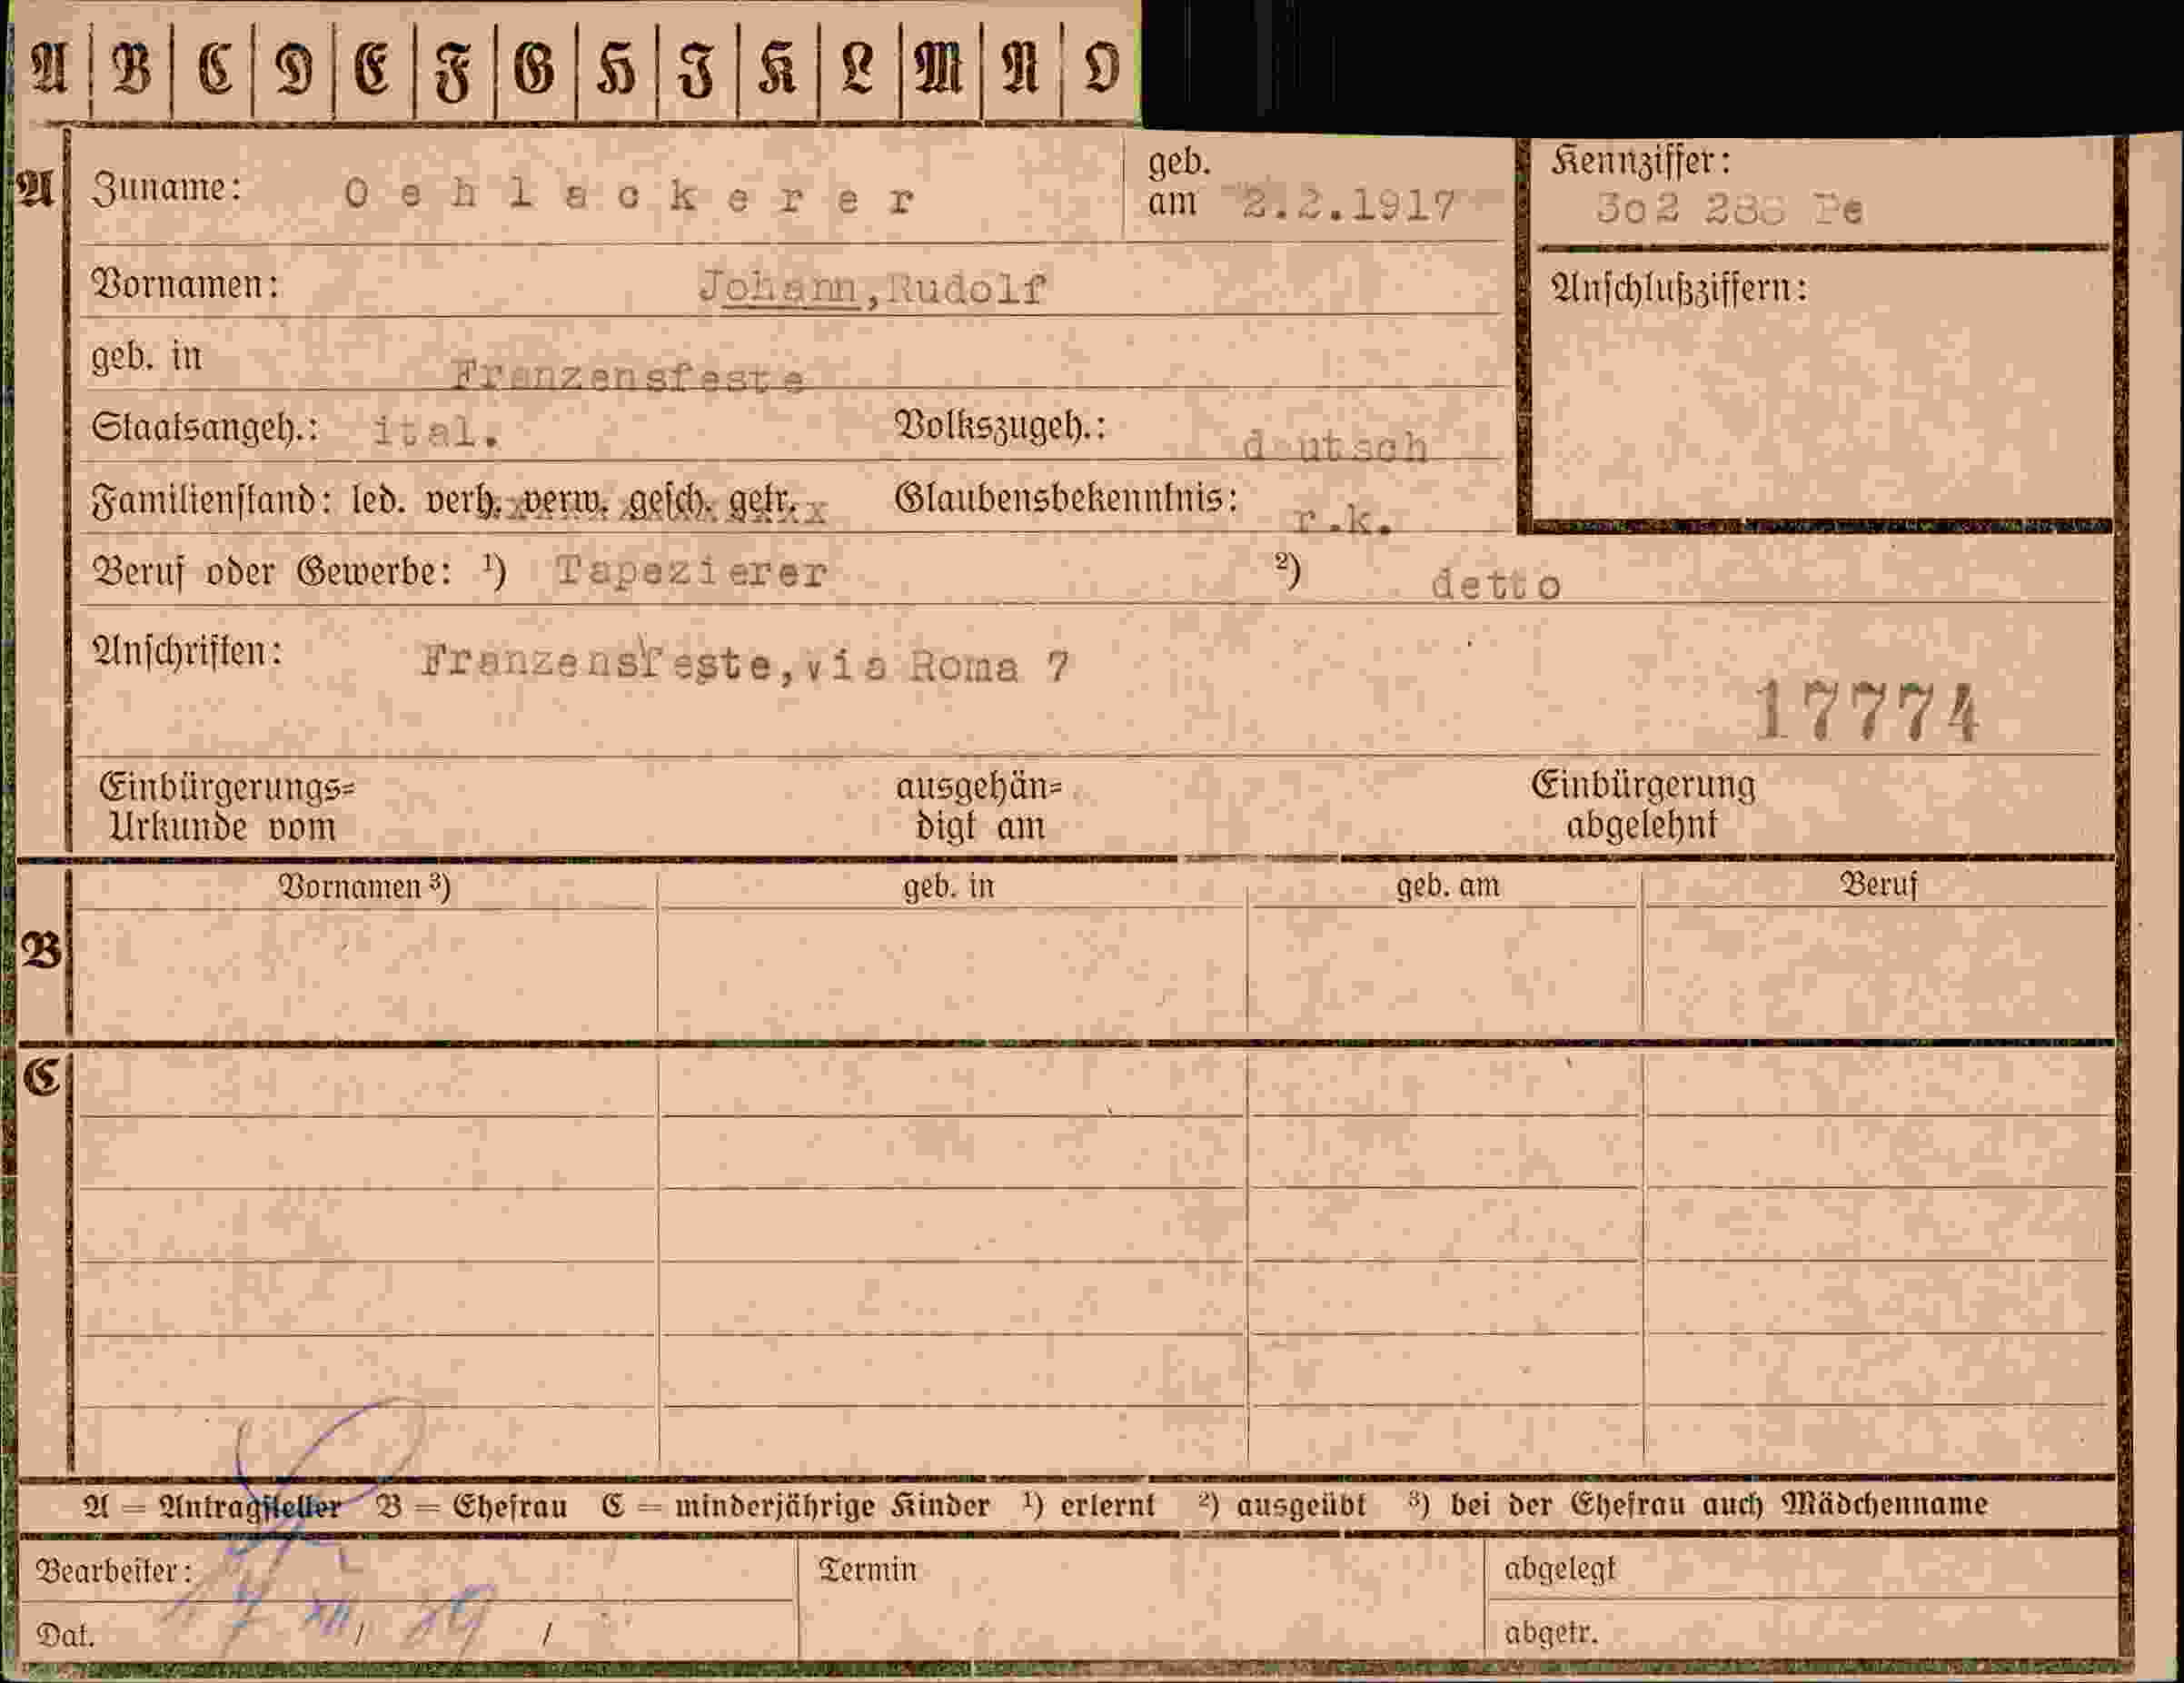 A B C D E F G H I K L M N O
A Zuname: Oehlackerer geb. am 2.2.1917 Kennziffer: 302 288 Pe
Vornamen: Johann, Rudolf Anschlußziffern:
geb. in Franzensfeste
Staatsangeh.: ital. Volkszugeh.: deutsch
Familienstand: led. verh. verw. gesch. getr. Glaubensbekenntnis: r.k.
Beruf oder Gewerbe: ¹) Tapezierer ²) detto
Anschriften: Franzensfeste, via Roma 7
17774
Einbürgerungs= ausgehän= Einbürgerung
Urkunde vom digt am abgelehnt
Vornamen ³) geb. in geb. am Beruf
B
C
A = Antragsteller B = Ehefrau C = minderjährige Kinder ¹) erlernt ²) ausgeübt ³) bei der Ehefrau auch Mädchenname
Bearbeiter: Termin abgelegt
Dat. XII / 39 / abgetr.